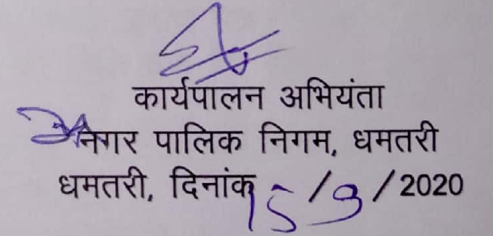 कार्यपालन अभियंता
नगर पालिक निगम, धमतरी
धमतरी, दिनांक 15/9/2020